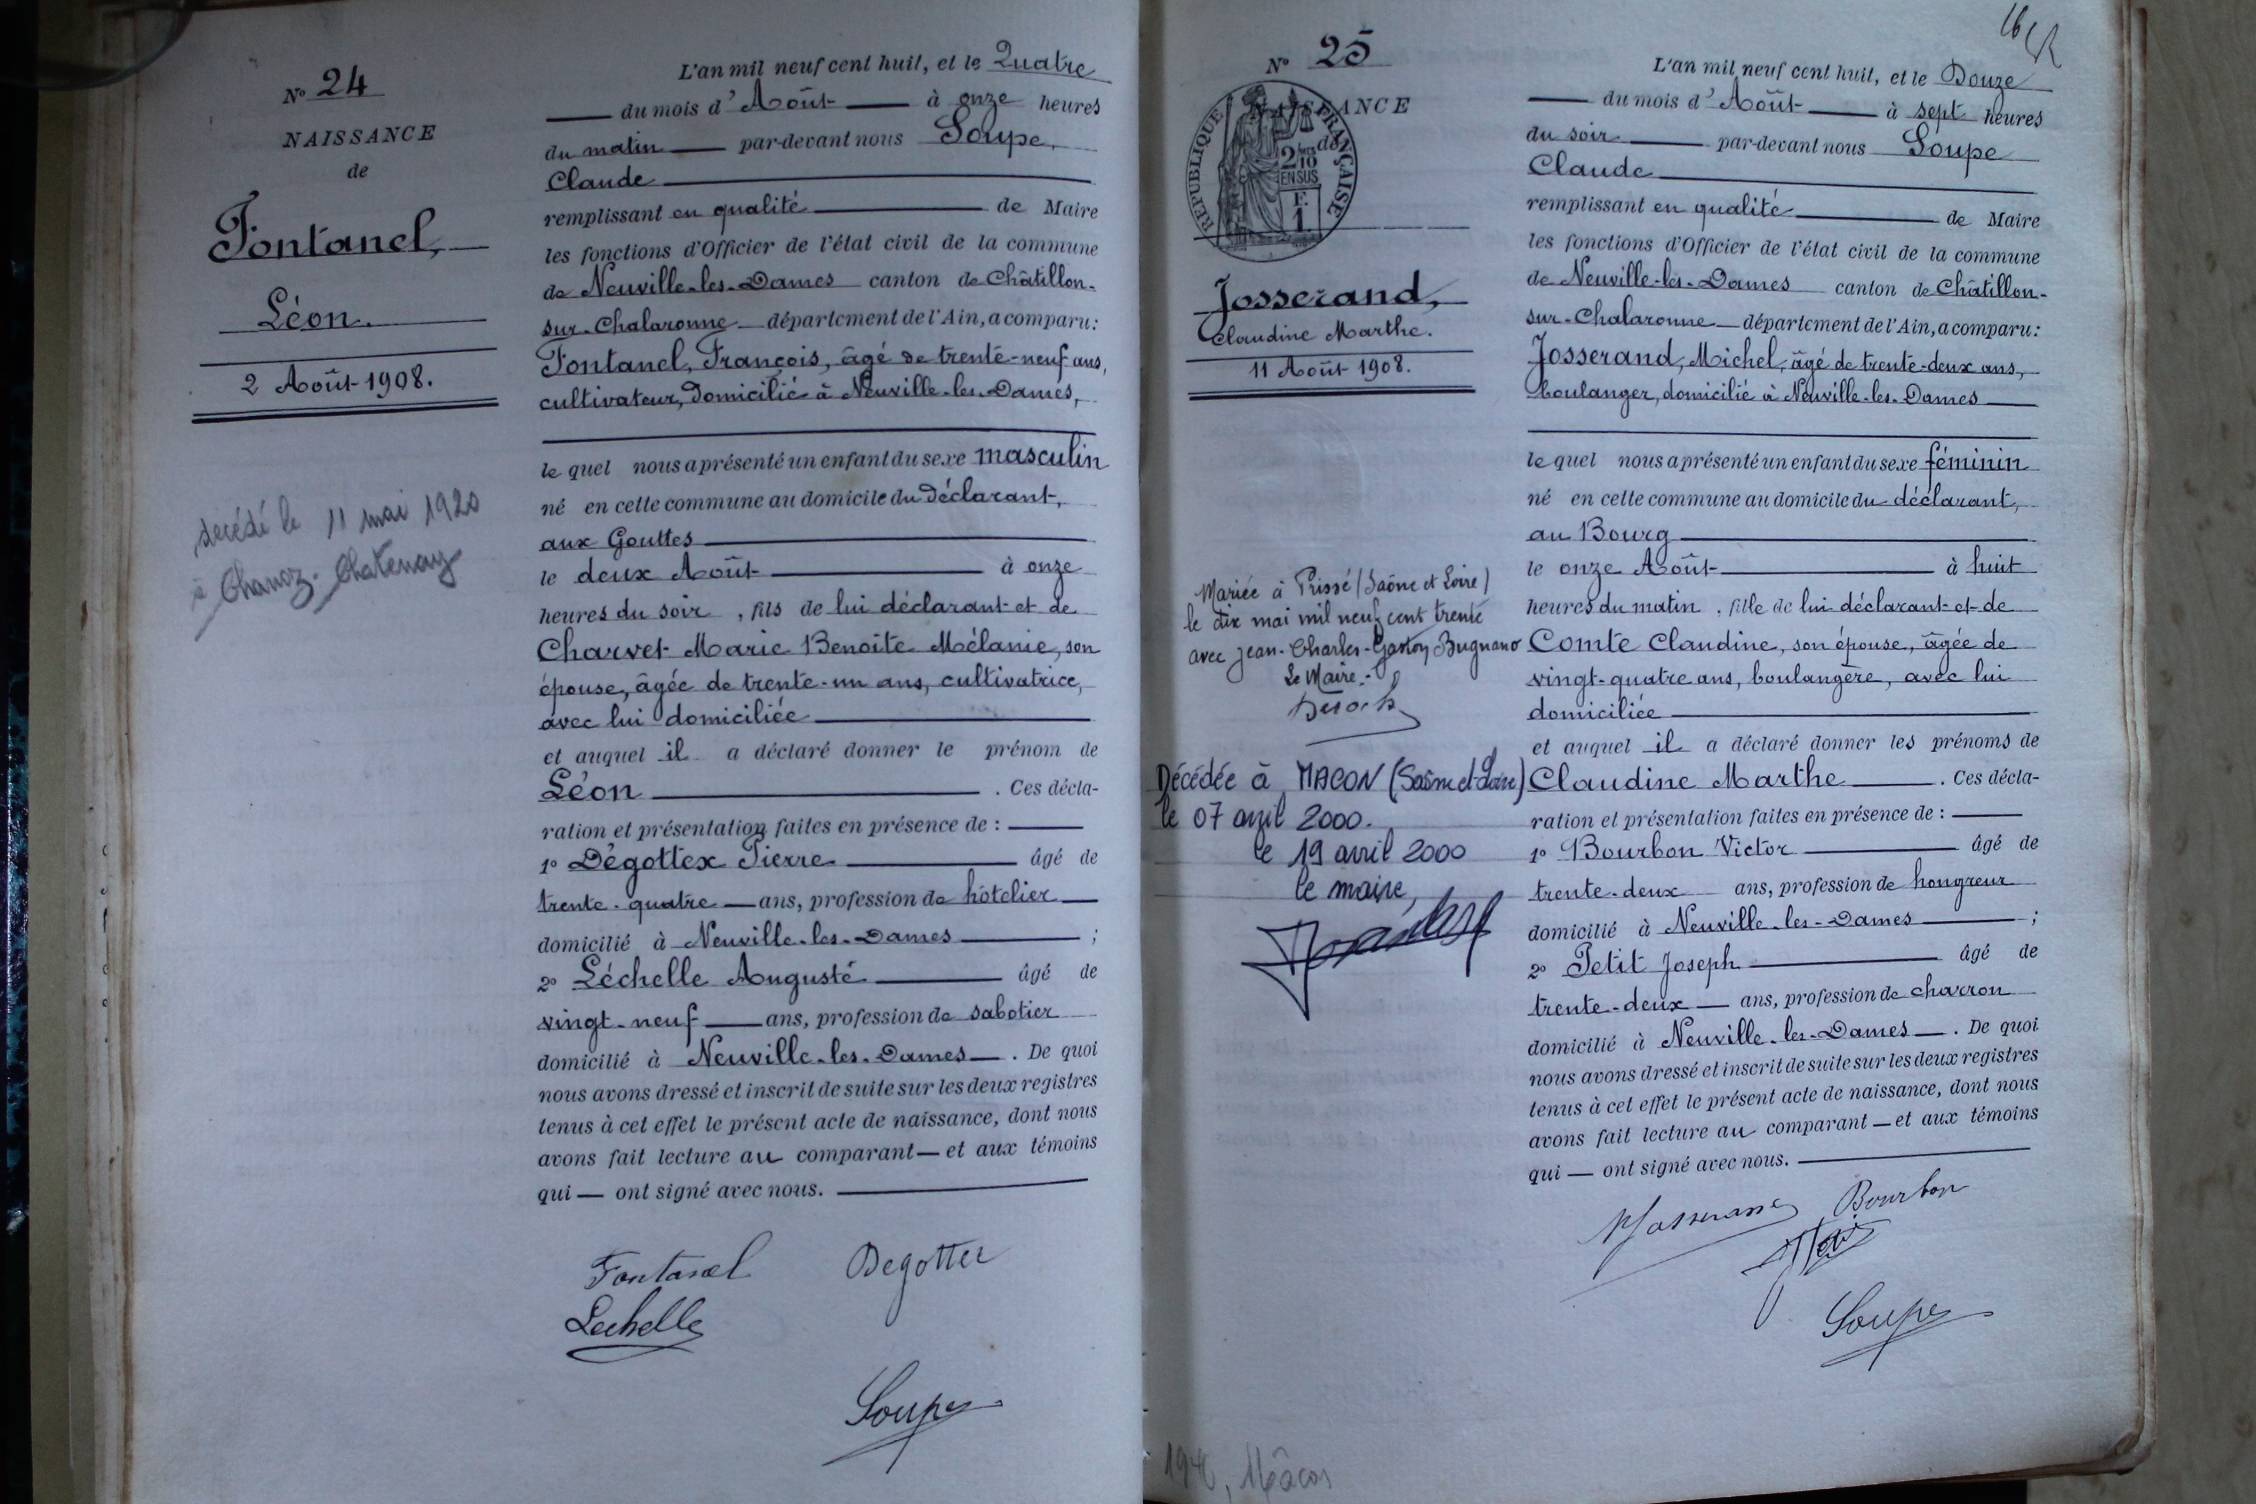 N° 24
NAISSANCE
de
Fontanel,
Léon.
2 Août 1908.
décédé le 11 mai 1920
à Chanoz-Chatenay
L'an mil neuf cent huit, et le Quatre
du mois d'Août à onze heures
du matin par-devant nous Soupe,
Claude
remplissant en qualité de Maire
les fonctions d'Officier de l'état civil de la commune
de Neuville-les-Dames canton de Châtillon-
sur-Chalaronne département de l'Ain, a comparu:
Fontanel, François, âgé de trente-neuf ans,
cultivateur, domicilié à Neuville-les-Dames,
le quel nous a présenté un enfant du sexe masculin
né en cette commune au domicile du déclarant,
aux Gouttes
le deux Août à onze
heures du soir, fils de lui déclarant et de
Charvet Marie Benoîte Mélanie, son
épouse, âgée de trente-un ans, cultivatrice,
avec lui domiciliée
et auquel il a déclaré donner le prénom de
Léon. Ces décla-
ration et présentation faites en présence de :
1° Dégottex Pierre âgé de
trente-quatre ans, profession de hôtelier
domicilié à Neuville-les-Dames ;
2° Léchelle Auguste âgé de
vingt-neuf ans, profession de sabotier
domicilié à Neuville-les-Dames. De quoi
nous avons dressé et inscrit de suite sur les deux registres
tenus à cet effet le présent acte de naissance, dont nous
avons fait lecture au comparant et aux témoins
qui ont signé avec nous.
Fontanel Degottex
Lechelle
Soupe
N° 25
NAISSANCE
de
REPUBLIQUE FRANÇAISE
2/10 EN SUS
F. 1.
Josserand,
Claudine Marthe.
11 Août 1908.
Mariée à Prissé (Saône et Loire)
le dix mai mil neuf cent trente
avec Jean-Charles-Gaston Bugnano
Le Maire.-
Décédée à MACON (Saône et Loire)
le 07 avril 2000.
le 19 avril 2000
le maire,
L'an mil neuf cent huit, et le Douze
du mois d'Août à sept heures
du soir par-devant nous Soupe
Claude
remplissant en qualité de Maire
les fonctions d'Officier de l'état civil de la commune
de Neuville-les-Dames canton de Châtillon-
sur-Chalaronne département de l'Ain, a comparu:
Josserand, Michel, âgé de trente-deux ans,
boulanger, domicilié à Neuville-les-Dames
le quel nous a présenté un enfant du sexe féminin
né en cette commune au domicile du déclarant,
au Bourg
le onze Août à huit
heures du matin, fille de lui déclarant et de
Comte Claudine, son épouse, âgée de
vingt-quatre ans, boulangère, avec lui
domiciliée
et auquel il a déclaré donner les prénoms de
Claudine Marthe. Ces décla-
ration et présentation faites en présence de :
1° Bourbon Victor âgé de
trente-deux ans, profession de hongreur
domicilié à Neuville-les-Dames ;
2° Petit Joseph âgé de
trente-deux ans, profession de charron
domicilié à Neuville-les-Dames. De quoi
nous avons dressé et inscrit de suite sur les deux registres
tenus à cet effet le présent acte de naissance, dont nous
avons fait lecture au comparant et aux témoins
qui ont signé avec nous.
MJosserand Bourbon
Soupe
Mâcon